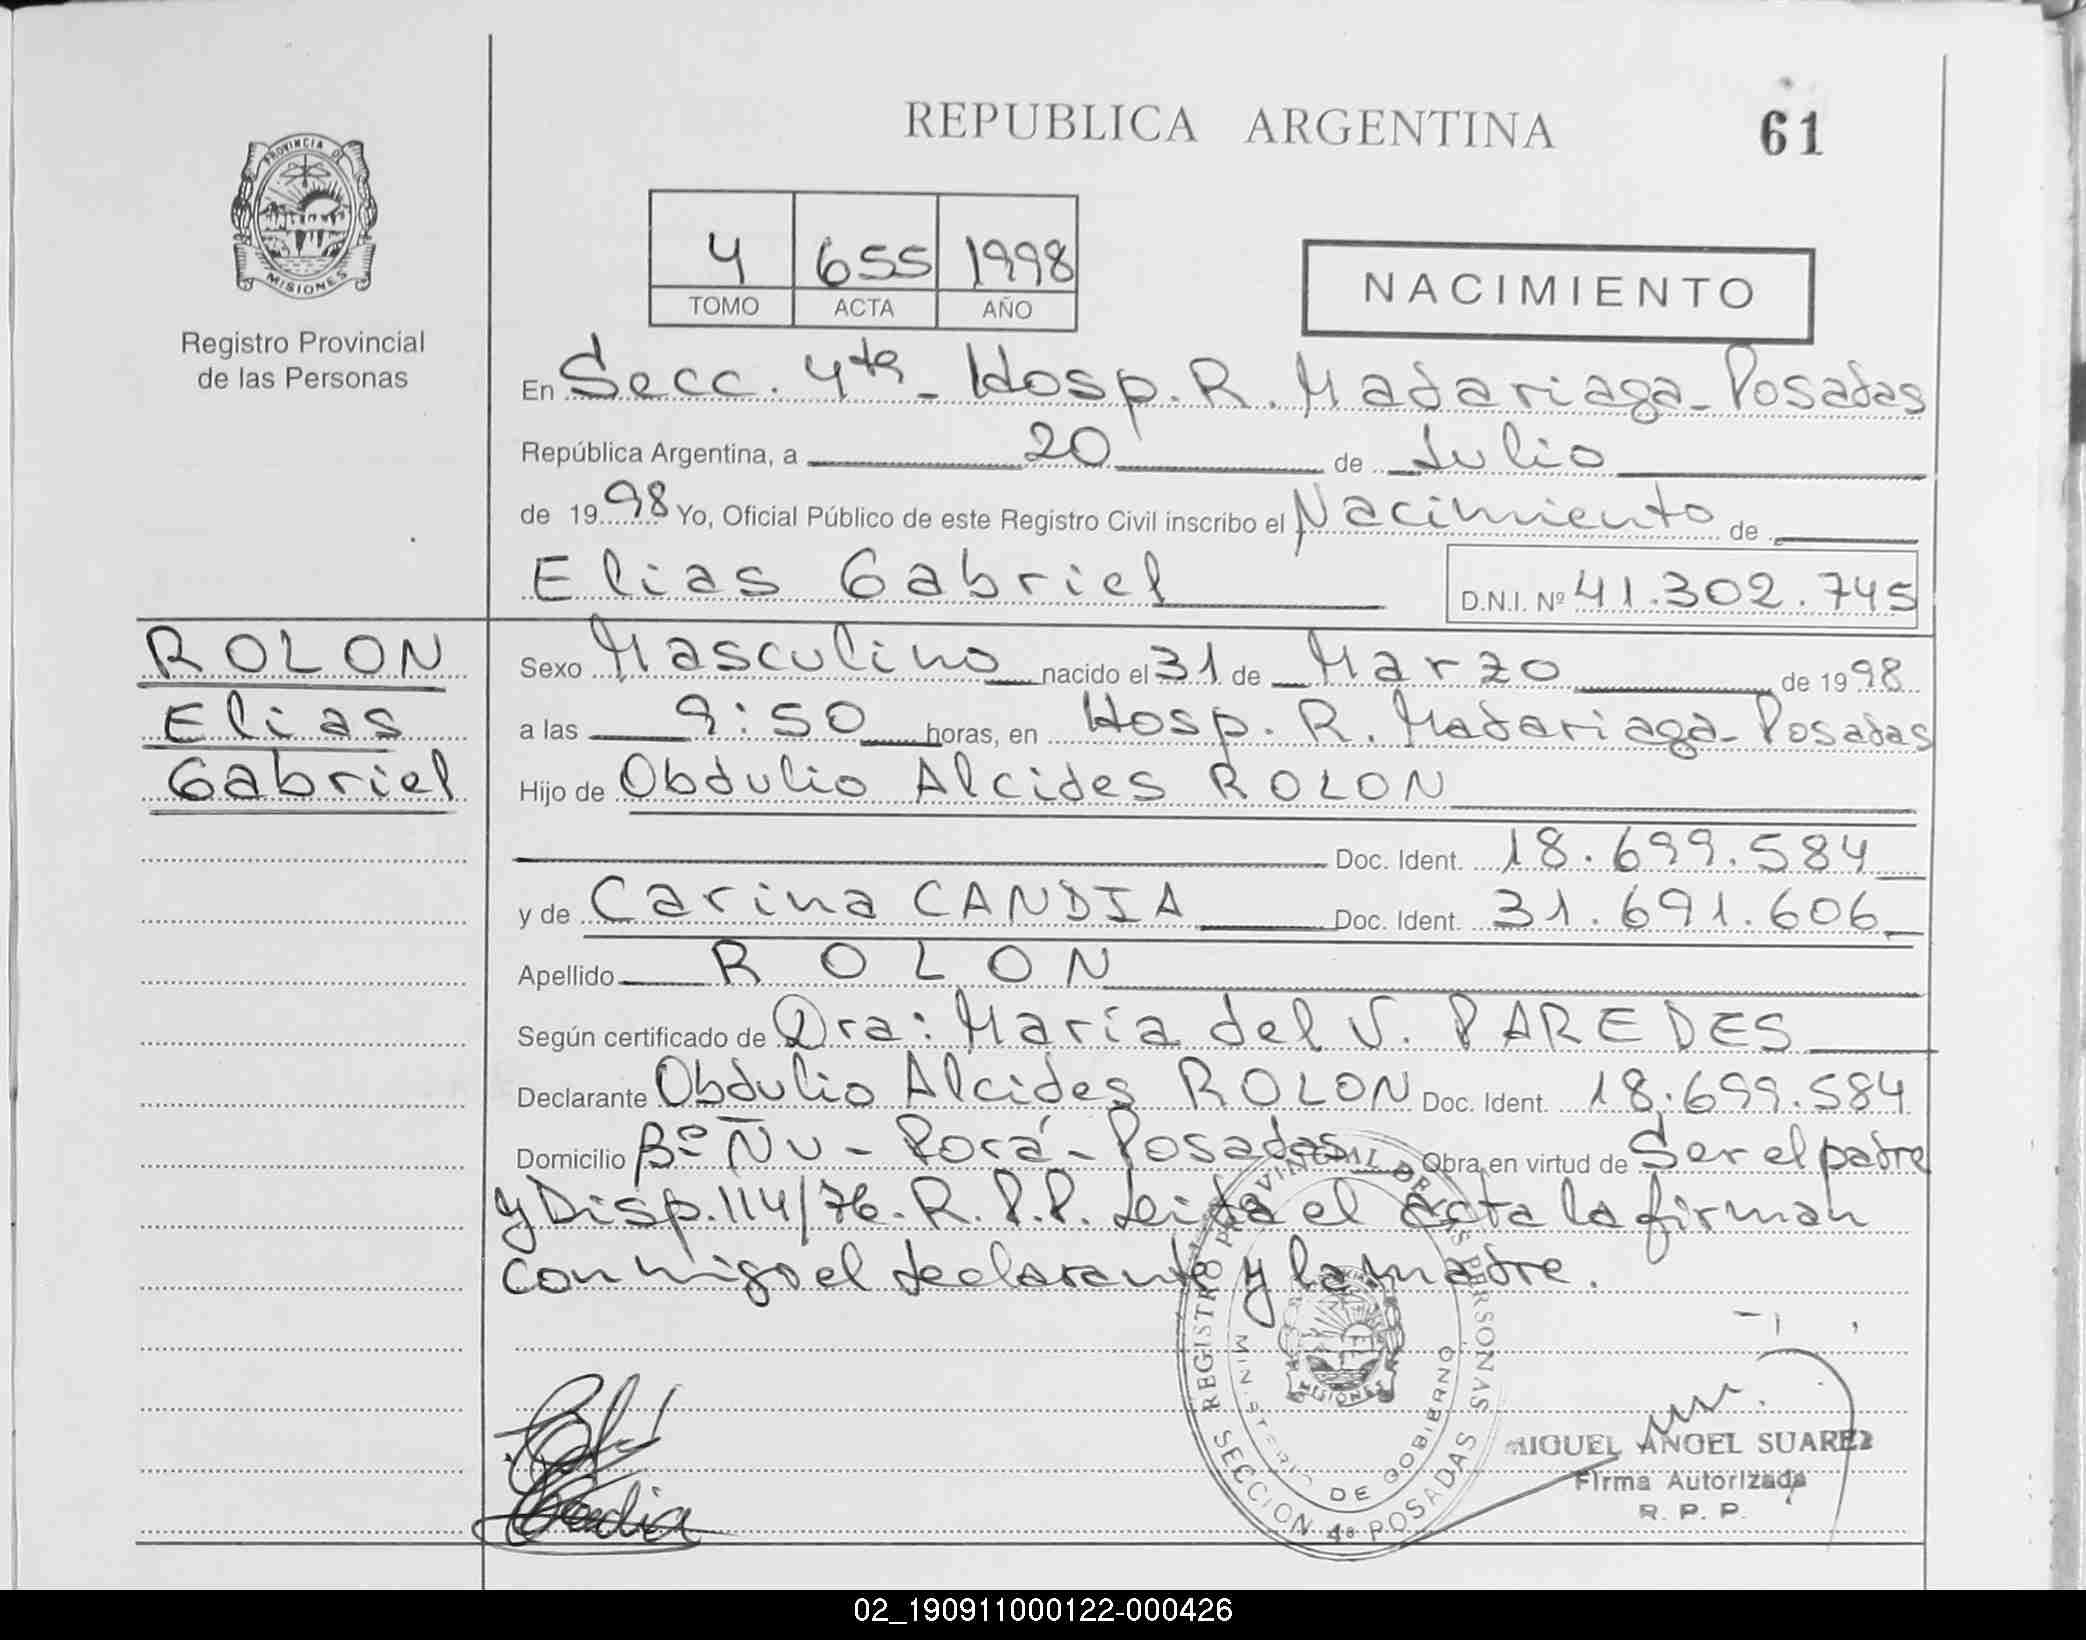 REPUBLICA ARGENTINA
61
PROVINCIA DE
MISIONES
Registro Provincial
de las Personas
4 655 1998
TOMO ACTA AÑO
NACIMIENTO
En Secc. 4ta - Hosp. R. Madariaga - Posadas
República Argentina, a 20 de Julio
de 1998 Yo, Oficial Público de este Registro Civil inscribo el Nacimiento de
Elias Gabriel D.N.I. Nº 41.302.745
ROLON
Elias
Gabriel
Sexo Masculino nacido el 31 de Marzo de 1998
a las 9:50 horas, en Hosp. R. Madariaga - Posadas
Hijo de Obdulio Alcides ROLON
Doc. Ident. 18.699.584
y de Carina CANDIA Doc. Ident. 31.691.606
Apellido ROLON
Según certificado de Dra: María del V. PAREDES
Declarante Obdulio Alcides ROLON Doc. Ident. 18.699.584
Domicilio Bº Ñu - Porá - Posadas Obra en virtud de Ser el padre
y Disp. 114/76. R.P.P. Leida el acta la firman
conmigo el declarante y la madre.
REGISTRO PROVINCIAL DE LAS PERSONAS
MINISTERIO DE GOBIERNO
MISIONES
SECCION 4ª POSADAS
MIGUEL ANGEL SUAREZ
Firma Autorizada
R. P. P.
02_190911000122-000426